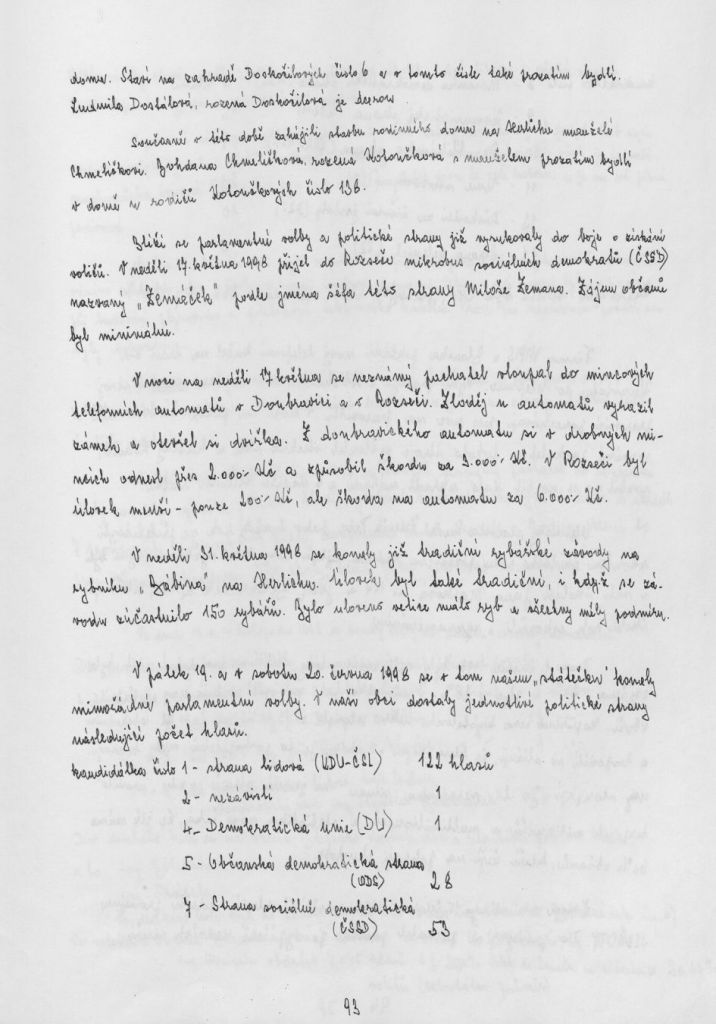 domu. Staví na zahradě Doskořilových číslo 6 a v tomto čísle také prozatím bydlí.
Ludmila Dostálová, rozená Doskořilová je dcerou.
Současně v této době zahájili stavbu rodinného domu na Herlichu manželé
Chmelíčkovi. Bohdana Chmelíčková, rozená Kotoučková s manželem prozatím bydlí
v domě u rodičů Kotoučkových číslo 136.
Blíží se parlamentní volby a politické strany již vyrukovaly do boje o získání
voličů. V neděli 17. května 1998 přijel do Rozseče mikrobus sociálních demokratů (ČSSD)
nazvaný "Zemáček" podle jména šéfa této strany Miloše Zemana. Zájem občanů
byl minimální.
V noci na neděli 17 května se neznámý pachatel vloupal do mincových
telefonních automatů v Doubravici a v Rozseči. Zloděj u automatů vyrazil
zámek a otevřel si dvířka. Z doubravického automatu si v drobných mi-
ncích odnesl přes 2.000.- Kč a způsobil škodu za 9.000.- Kč. V Rozseči byl
úlovek menší - pouze 200.- Kč, ale škoda na automatu za 6.000.- Kč.
V neděli 31. května 1998 se konaly již tradiční rybářské závody na
rybníku "Zábina" na Herlichu. Úlovek byl také tradiční, i když se zá-
vodu zúčastnilo 150 rybářů. Bylo uloveno velice málo ryb a všechny měly podmíru.
V pátek 19. a v sobotu 20. června 1998 se v tom našem "státečku" konaly
mimořádné parlamentní volby. V naší obci dostaly jednotlivé politické strany
následující počet hlasů.
kandidátka číslo 1 - strana lidová (KDU-ČSL) 122 hlasů
2 - nezávislí 1
4 - Demokratická unie (DU) 1
5 - Občanská demokratická strana
(ODS) 28
7 - Strana sociálně demokratická
(ČSSD) 53
93